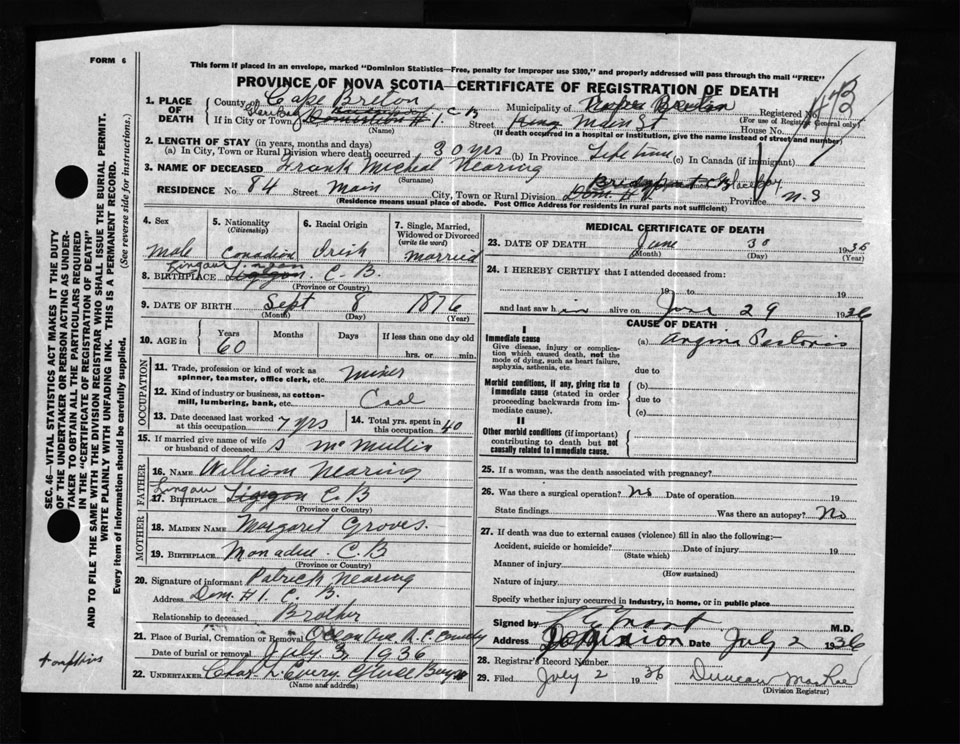 FORM 6
This form if placed in an envelope, marked "Dominion Statistics—Free, penalty for improper use $300," and properly addressed will pass through the mail "FREE"
PROVINCE OF NOVA SCOTIA—CERTIFICATE OF REGISTRATION OF DEATH
1. PLACE OF DEATH
County of Cape Breton Municipality of Registered No.
(For use of Registrar General only)
If in City or Town Dominion #1. C B Street Main St House No.
(Name) (If death occurred in a hospital or institution, give the name instead of street and number)
2. LENGTH OF STAY (in years, months and days)
(a) In City, Town or Rural Division where death occurred 30 yrs (b) In Province Life time (c) In Canada (if immigrant)
3. NAME OF DECEASED Frank Michel Nearing
(Surname)
RESIDENCE No. 84 Street Main City, Town or Rural Division Dom #1 Glace Bay Province N.S
(Residence means usual place of abode. Post Office Address for residents in rural parts not sufficient)
4. Sex
Male
5. Nationality
(Citizenship)
Canadian
6. Racial Origin
Irish
7. Single, Married, Widowed or Divorced
(write the word)
Married
8. BIRTHPLACE Lingan C. B.
(Province or Country)
9. DATE OF BIRTH Sept 8 1876
(Month) (Day) (Year)
10. AGE in Years Months Days If less than one day old
60 hrs. or min.
OCCUPATION
11. Trade, profession or kind of work as spinner, teamster, office clerk, etc. Miner
12. Kind of industry or business, as cotton-mill, lumbering, bank, etc. Coal
13. Date deceased last worked at this occupation 7 yrs 14. Total yrs. spent in this occupation 40
15. If married give name of wife or husband of deceased S McMullin
FATHER
16. NAME William Nearing
17. BIRTHPLACE Lingan C. B
(Province or Country)
MOTHER
18. MAIDEN NAME Margaret Groves.
19. BIRTHPLACE C. B
(Province or Country)
20. Signature of informant Patrick Nearing
Address Dom. #1. C. B.
Relationship to deceased Brother
21. Place of Burial, Cremation or Removal R. C.
Date of burial or removal July 3, 1936
22. UNDERTAKER Glace Bay
(Name and address)
MEDICAL CERTIFICATE OF DEATH
23. DATE OF DEATH June 30 1936
(Month) (Day) (Year)
24. I HEREBY CERTIFY that I attended deceased from:
19 to 19
and last saw him alive on June 29 1936
CAUSE OF DEATH
I
Immediate cause
Give disease, injury or complication which caused death, not the mode of dying, such as heart failure, asphyxia, asthenia, etc.
(a) Angina Pectoris
due to
Morbid conditions, if any, giving rise to immediate cause (stated in order proceeding backwards from immediate cause).
(b)
due to
(c)
II
Other morbid conditions (if important) contributing to death but not causally related to immediate cause.
25. If a woman, was the death associated with pregnancy?
26. Was there a surgical operation? No Date of operation 19
State findings Was there an autopsy? No
27. If death was due to external causes (violence) fill in also the following:—
Accident, suicide or homicide? Date of injury 19
(State which)
Manner of injury
(How sustained)
Nature of injury
Specify whether injury occurred in industry, in home, or in public place
Signed by M.D.
Address Dominion Date July 2 1936
28. Registrar's Record Number
29. Filed July 2 1936 Duncan MacRae
(Division Registrar)
SEC. 46—VITAL STATISTICS ACT MAKES IT THE DUTY
OF THE UNDERTAKER OR PERSON ACTING AS UNDER-
TAKER TO OBTAIN ALL THE PARTICULARS REQUIRED
IN THE "CERTIFICATE OF REGISTRATION OF DEATH"
AND TO FILE THE SAME WITH THE DIVISION REGISTRAR WHO SHALL ISSUE THE BURIAL PERMIT.
WRITE PLAINLY WITH UNFADING INK. THIS IS A PERMANENT RECORD.
Every item of Information should be carefully supplied.
(See reverse side for instructions.)
Tompkins